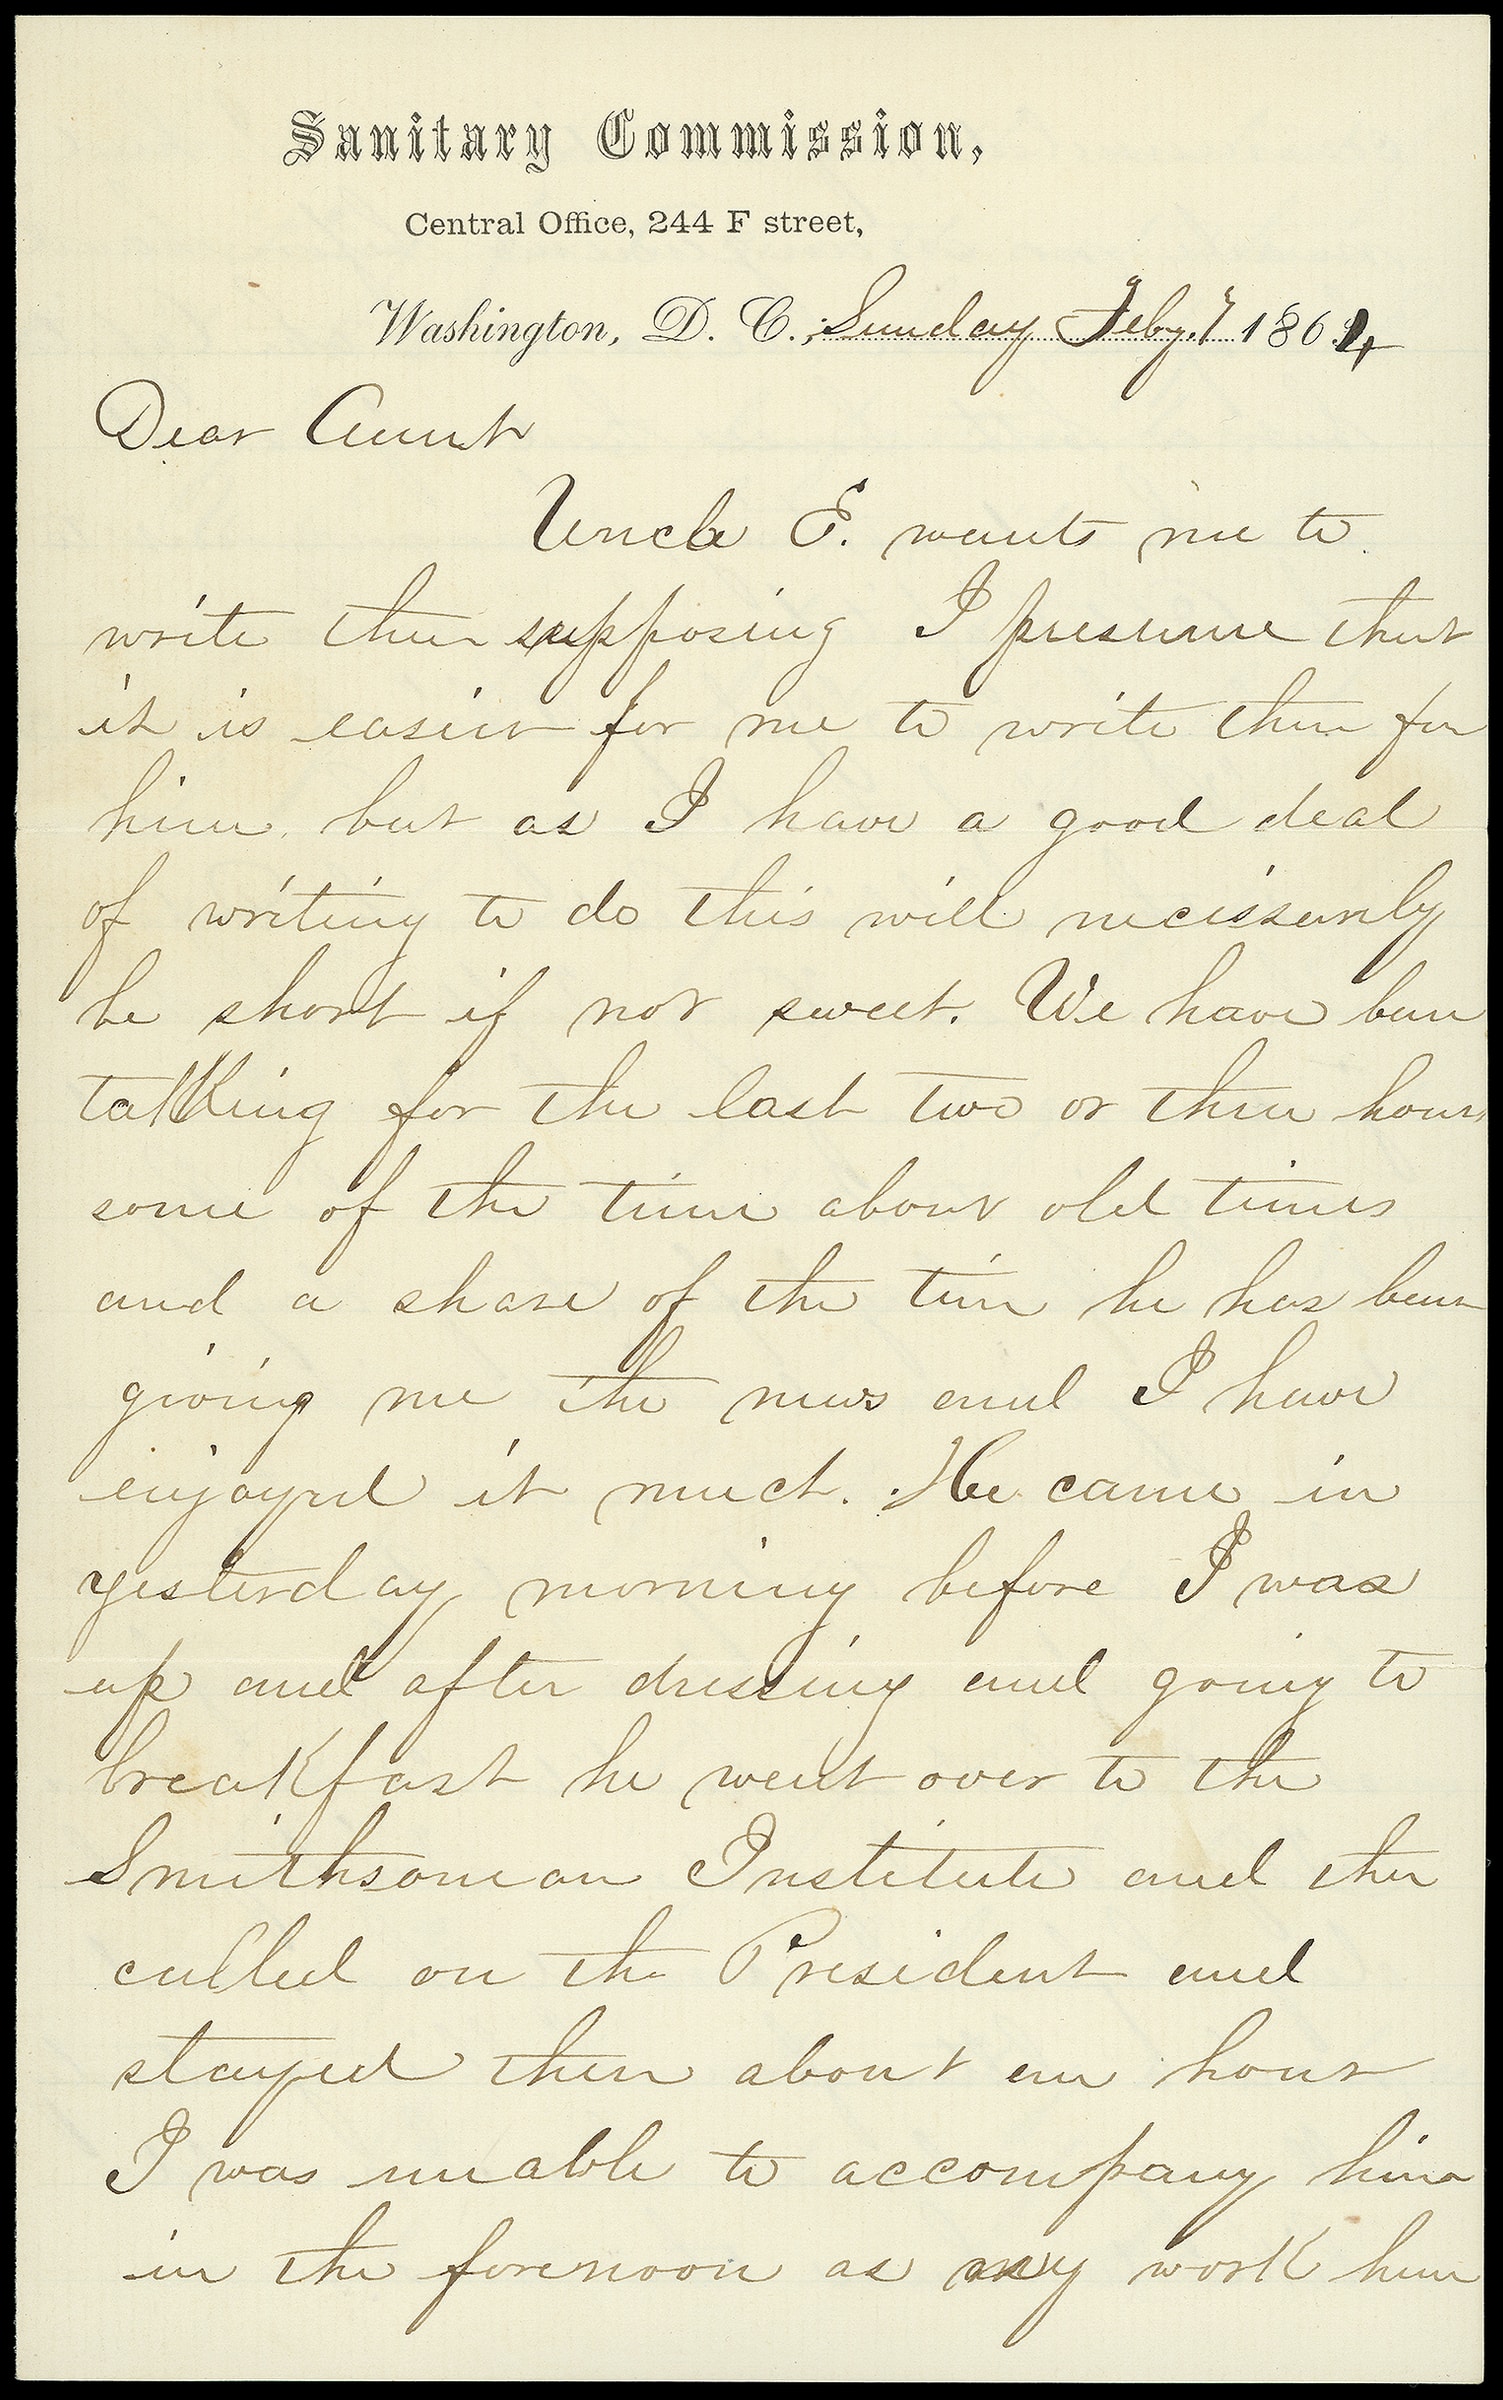 Sanitary Commission,
Central Office, 244 F street,
Washington, D. C., Sunday Feby. 7 1864
Dear Aunt
Uncle E. wants me to
write thee supposing I presume that
it is easier for me to write than for
him, but as I have a good deal
of writing to do this will necissarily
be short if not sweet. We have been
talking for the last two or three hours
some of the time about old times
and a share of the time he has been
giving me the news and I have
enjoyed it much. He came in
yesterday morning before I was
up and after dressing and going to
breakfast he went over to the
Smithsonian Institute and then
called on the President and
stayed there about an hour
I was unable to accompany him
in the forenoon as my work here